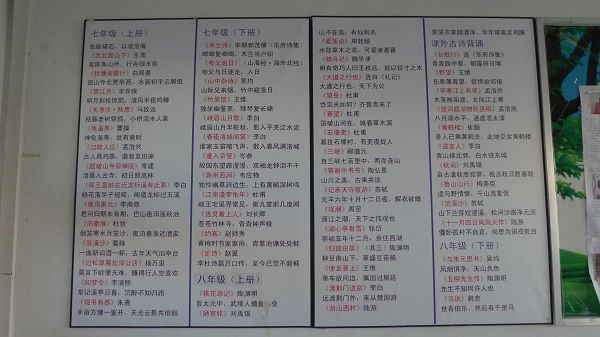 七年级（上册）
东临碣石，以观沧海
《次北固山下》王湾
客路青山外，行舟绿水前
《钱塘湖春行》白居易
孤山寺北贾亭西，水面初平云脚低
《西江月》辛弃疾
明月别枝惊鹊，清风半夜鸣蝉
《天净沙·秋思》马致远
枯藤老树昏鸦，小桥流水人家
《龟虽寿》曹操
神龟虽寿，犹有竟时
《过故人庄》孟浩然
古人具鸡黍，邀我至田家
《题破山寺后禅院》常建
清晨入古寺，初日照高林
《闻王昌龄左迁龙标遥有此寄》李白
杨花落尽子规啼，闻道龙标过五溪
《夜雨寄北》李商隐
君问归期未有期，巴山夜雨涨秋池
《泊秦淮》杜牧
烟笼寒水月笼沙，夜泊秦淮近酒家
《浣溪沙》晏殊
一曲新词酒一杯，去年天气旧亭台
《过松源晨炊漆公店》杨万里
莫言下岭便无难，赚得行人空喜欢
《如梦令》李清照
常记溪亭日暮，沉醉不知归路
《观书有感》朱熹
半亩方塘一鉴开，天光云影共徘徊
七年级（下册）
《木兰诗》宋朝郭茂倩《乐府诗集》
唧唧复唧唧，木兰当户织
《夸父逐日》《山海经·海外北经》
夸父与日逐走，入日
《山中杂诗》吴均
山际见来烟，竹中窥落日
《竹里馆》王维
独坐幽篁里，弹琴复长啸
《峨眉山月歌》李白
峨眉山月半轮秋，影入平羌江水流
《春夜洛城闻笛》李白
谁家玉笛暗飞声，散入春风满洛城
《逢入京使》岑参
故园东望路漫漫，双袖龙钟泪不干
《滁州西涧》韦应物
独怜幽草涧边生，上有黄鹂深树鸣
《江南逢李龟年》杜甫
岐王宅里寻常见，崔九堂前几度闻
《送灵澈上人》刘长卿
苍苍竹林寺，杳杳钟声晚
《约客》赵师秀
黄梅时节家家雨，青草池塘处处蛙
《论诗》赵翼
李杜诗篇万口传，至今已觉不新鲜
八年级（上册）
《桃花源记》陶渊明
晋太元中，武陵人捕鱼为业
《陋室铭》刘禹锡
山不在高，有仙则名
《爱莲说》周敦颐
水陆草木之花，可爱者甚蕃
《核舟记》魏学洢
明有奇巧人曰王叔远，能以径寸之木
《大道之行也》选自《礼记》
大道之行也，天下为公
《望岳》杜甫
岱宗夫如何？齐鲁青未了
《春望》杜甫
国破山河在，城春草木深
《石壕吏》杜甫
暮投石壕村，有吏夜捉人
《三峡》郦道元
自三峡七百里中，两岸连山
《答谢中书书》陶弘景
山川之美，古来共谈
《记承天寺夜游》苏轼
元丰六年十月十二日夜，解衣欲睡
《观潮》周密
浙江之潮，天下之伟观也
《湖心亭看雪》张岱
崇祯五年十二月，余住西湖
《归园田居》（其三）陶渊明
种豆南山下，草盛豆苗稀
《使至塞上》王维
单车欲问边，属国过居延
《渡荆门送别》李白
远渡荆门外，来从楚国游
《游山西村》陆游
莫笑农家腊酒浑，丰年留客足鸡豚
课外古诗背诵
《长歌行》选《乐府诗集》
青青园中葵，朝露待日晞
《野望》王绩
东皋薄暮望，徙倚欲何依
《早寒江上有怀》孟浩然
木落雁南渡，北风江上寒
《望洞庭湖赠张丞相》孟浩然
八月湖水平，涵虚混太清
《黄鹤楼》崔颢
昔人已乘黄鹤去，此地空余黄鹤楼
《送友人》李白
青山横北郭，白水绕东城
《秋词》刘禹锡
自古逢秋悲寂寥，我言秋日胜春朝
《鲁山山行》梅尧臣
适与野情惬，千山高复低
《浣溪沙》苏轼
山下兰芽短浸溪，松间沙路净无泥
《十一月四日风雨大作》陆游
僵卧孤村不自哀，尚思为国戍轮台
八年级（下册）
《与朱元思书》吴均
风烟俱净，天山共色
《五柳先生传》陶渊明
先生不知何许人也
《马说》韩愈
世有伯乐，然后有千里马